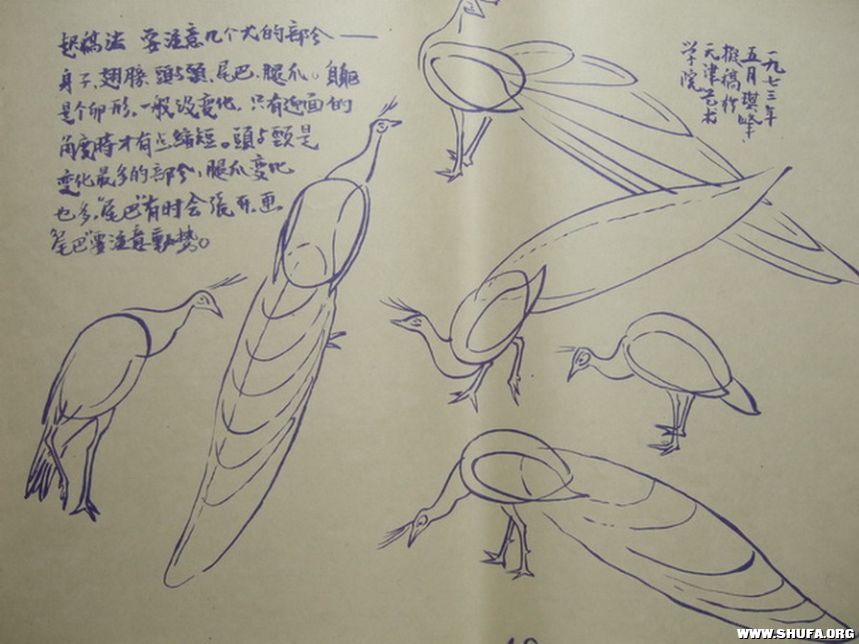 起稿法 要注意几个大的部分——
身子、翅膀、頭与頸、尾巴、腿爪。身軀
是个卵形，一般没变化，只有迎面的
角度時才有点缩短。頭与頸是
变化最多的部分，腿爪变化
也多，尾巴有时会張开，画
尾巴要注意動势。
一九七三年
五月璞峰
擬稿於
天津艺术
学院
WWW.SHUFA.ORG